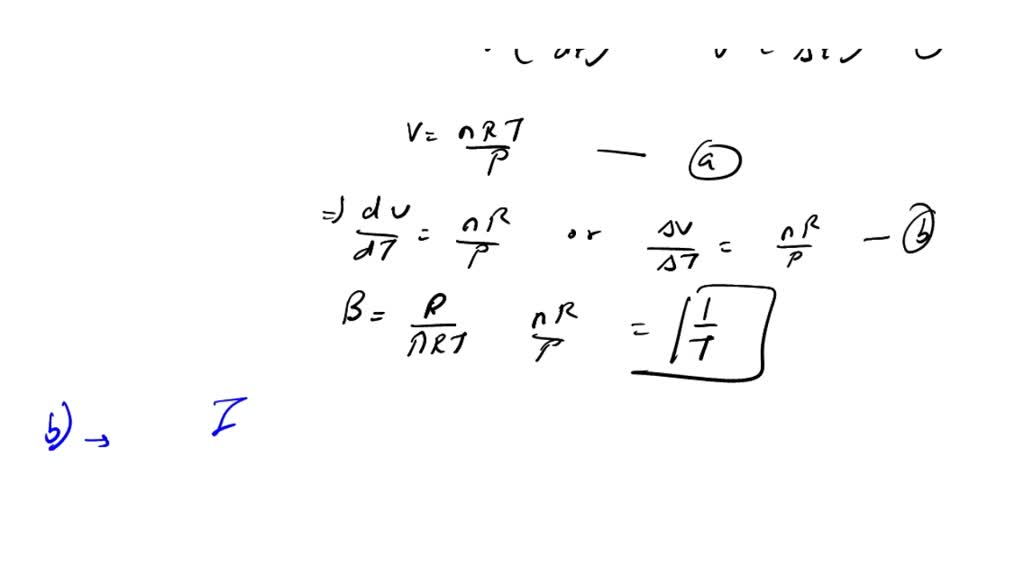 V = nRT/P — (a)
=) dV/dT = nR/P or ΔV/ΔT = nR/P — (b)
B = P/nRT nR/P = 1/T
b) → I